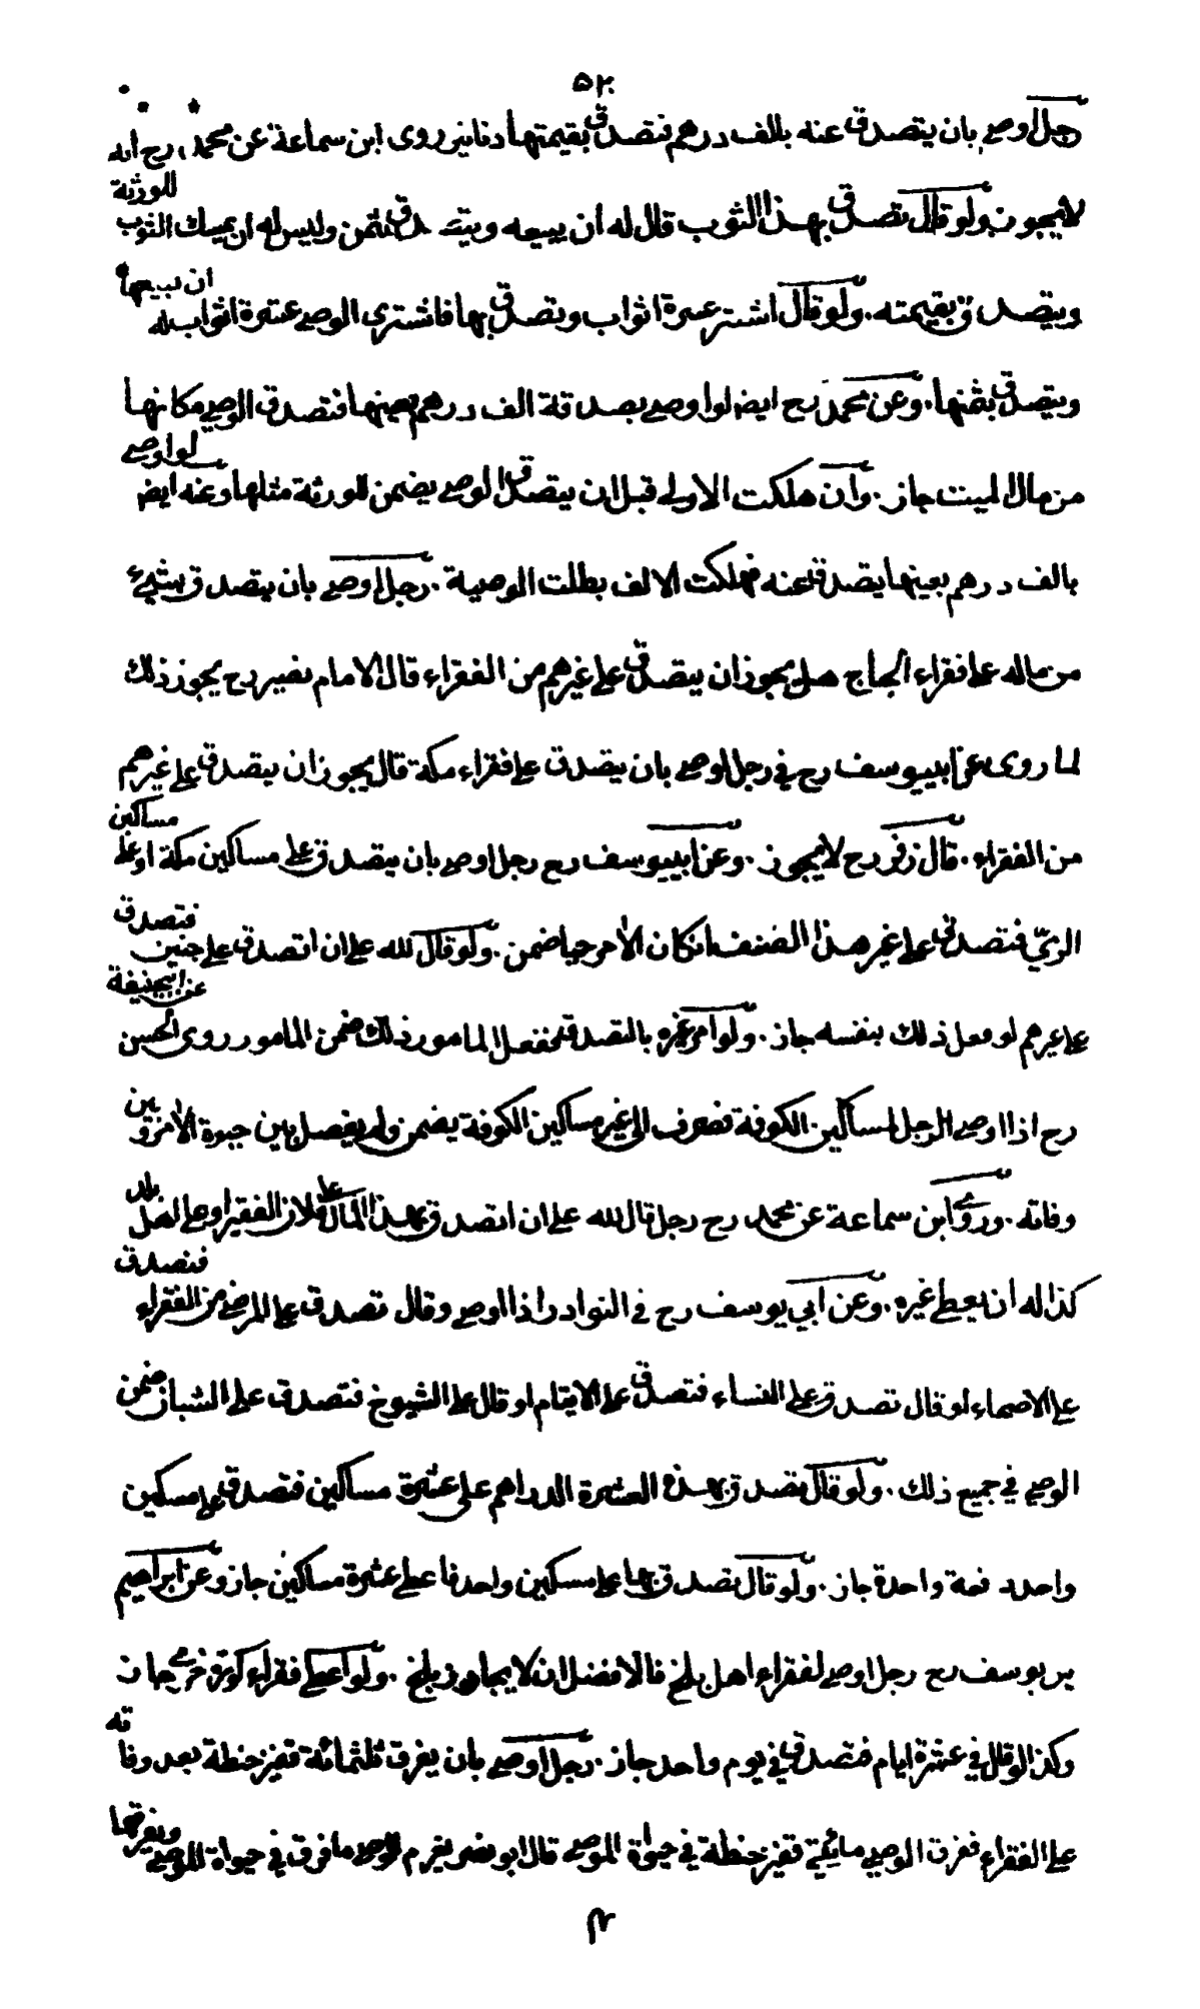 ٥٢
رجل اوصى بان يتصدق عنه بالف درهم فتصدق بقيمتها دنانير روى ابن سماعة عن محمد رح انه
لا يجوز ولو قال تصدق بهذا الثوب قال له ان يبيعه ويتصدق بثمن وليس له ان يمسك الثوب للورثة
ويتصدق بقيمته . ولو قال اشتر عشرة اثواب وتصدق بها فاشترى الوصى عشرة اثواب له ان يبيعها
ويتصدق بثمنها . وعن محمد رح ايضا لو اوصى بصدقة الف درهم بعينها فتصدق الوصى مكانها
من مال الميت جاز . وان هلكت الاولى قبل ان يتصدق الوصى يضمن للورثة مثلها وعنه ايضا لو اوصى
بالف درهم بعينها يتصدق عنه فهلكت الالف بطلت الوصية . رجل اوصى بان يتصدق بشئ
من ماله على فقراء الحاج هل يجوز ان يتصدق على غيرهم من الفقراء قال الامام نصير رح يجوز ذلك
لما روى عن ابييوسف رح في رجل اوصى بان يتصدق على فقراء مكة قال يجوز ان يتصدق على غيرهم
من الفقراء . قال زفر رح لا يجوز . وعن ابييوسف رح رجل اوصى بان يتصدق على مساكين مكة او على مساكين
الري فتصدق على غير هذا الصنف ان كان الآمر حيا ضمن . ولو قال لله على ان اتصدق على جنس فتصدق
على غيرهم لو فعل ذلك بنفسه جاز . ولو امر غيره بالتصدق ففعل المامور ذلك ضمن المامور روى الحسن عن ابيحنيفة
رح اذا اوصى الرجل لمساكين الكوفة فصرف الى غير مساكين الكوفة يضمن ولم يفصل بين حيوة الآمر وبين
وفاته . وروى ابن سماعة عن محمد رح رجل قال لله على ان اتصدق بهذا المال على فلان الفقير او على اهل بلد
كذا له ان يعطى غيره . وعن ابي يوسف رح في النوادر اذا اوصى وقال تصدق على المرضى من الفقراء فتصدق
على الاصحاء او قال تصدق على النساء فتصدق على الايتام او قال على الشيوخ فتصدق على الشبان ضمن
الوصى في جميع ذلك . ولو قال تصدق بهذه العشرة الدراهم على عشرة مساكين فتصدق على مسكين
واحد دفعة واحدة جاز . ولو قال تصدق بها على مسكين واحد فاعطى عشرة مساكين جاز وعن ابراهيم
بن يوسف رح رجل اوصى لفقراء اهل بلخ فالافضل ان لا يجاوز بلخ . ولو اعطى فقراء كورة اخرى جاز
وكذا لو قال في عشرة ايام فتصدق في يوم واحد جاز . رجل اوصى بان يفرق ثلثمائة قفيز حنطة بعد وفاته
على الفقراء ففرق الوصى مائتى قفيز حنطة في حيوة الموصى قال ابو نصر يغرم الوصى ما فرق في حيوة الموصى ويفرقها